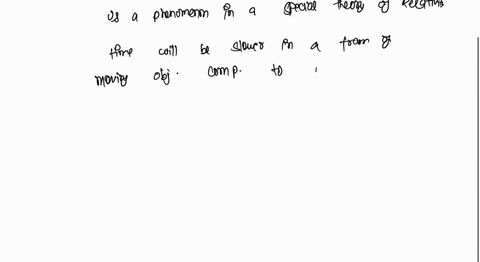 is a phenomenon in a special theory of
time will be slower in a fram of
moving obj. comp. to